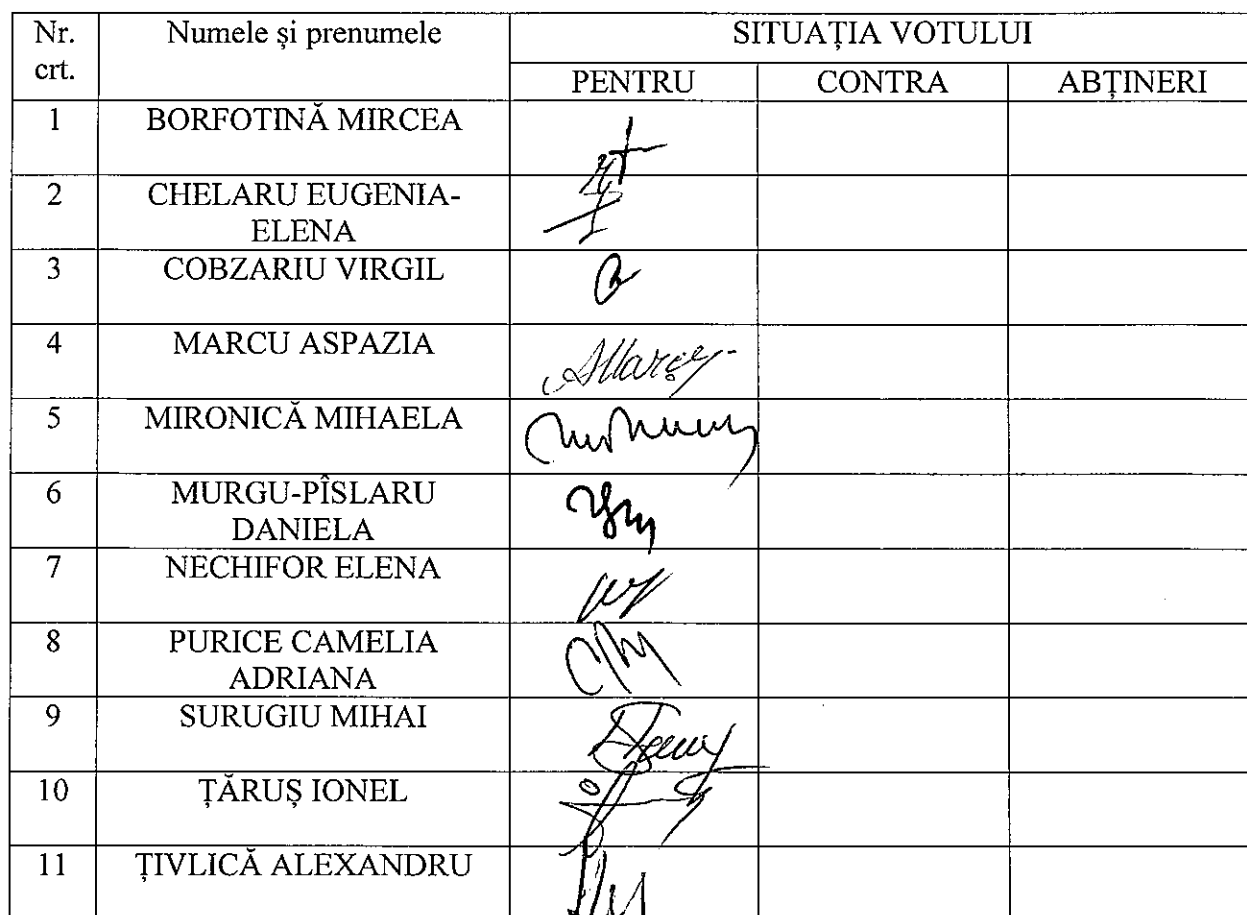 Nr. crt.
Numele și prenumele
SITUAȚIA VOTULUI
PENTRU
CONTRA
ABȚINERI
1
BORFOTINĂ MIRCEA
2
CHELARU EUGENIA-
ELENA
3
COBZARIU VIRGIL
4
MARCU ASPAZIA
AMarcu
5
MIRONICĂ MIHAELA
6
MURGU-PÎSLARU
DANIELA
7
NECHIFOR ELENA
8
PURICE CAMELIA
ADRIANA
9
SURUGIU MIHAI
10
ȚĂRUȘ IONEL
11
ȚIVLICĂ ALEXANDRU